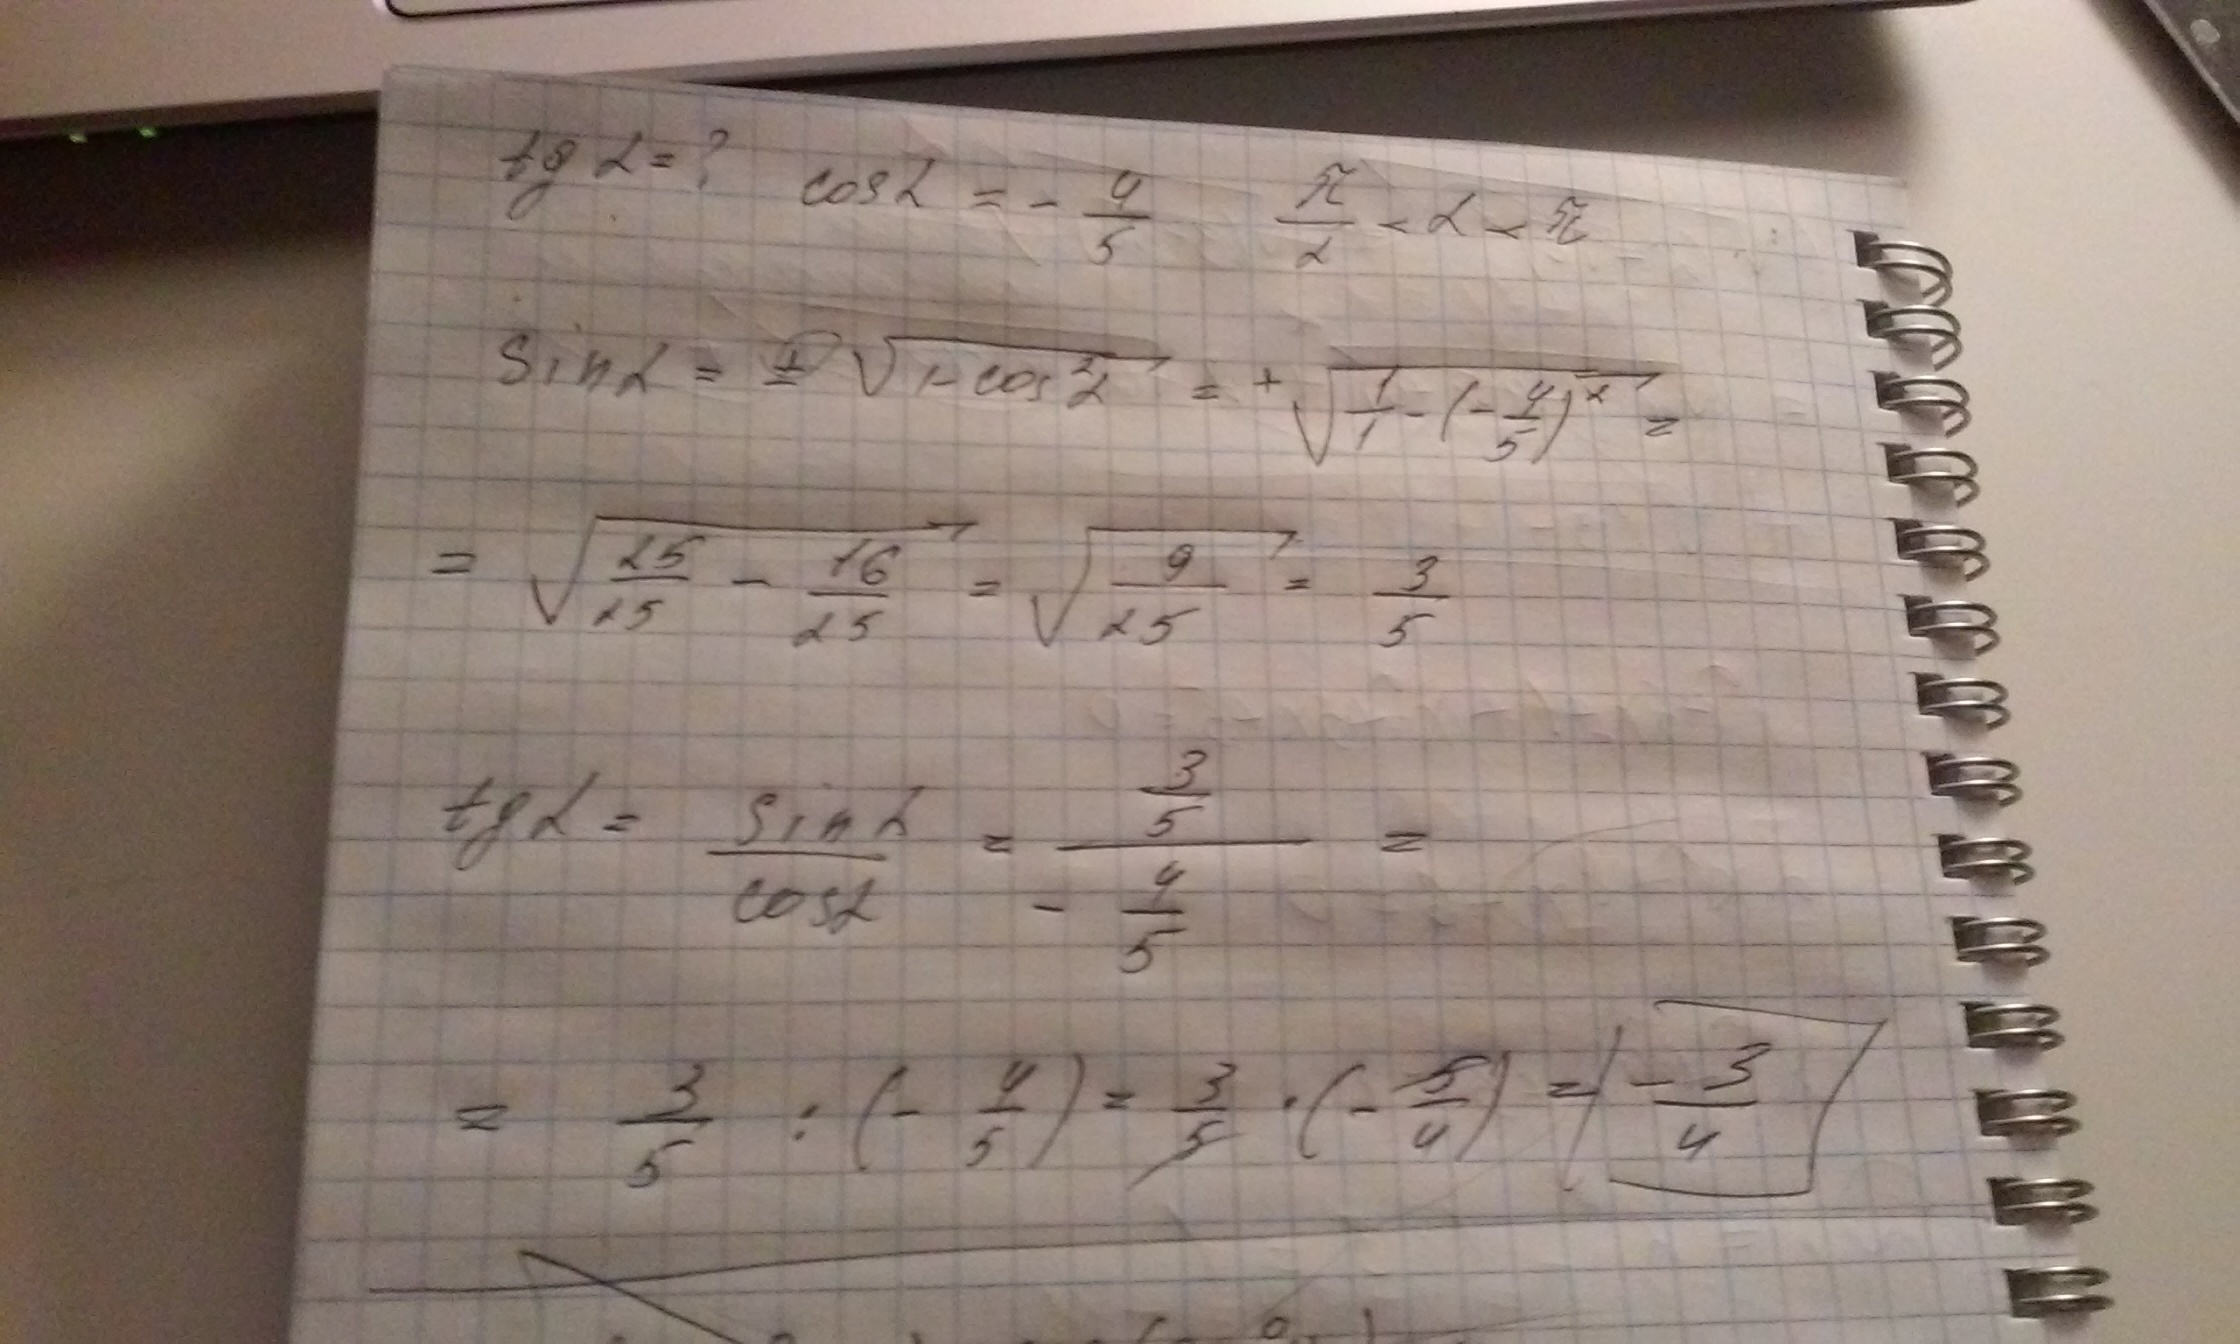 tg α = ? cos α = - 4/5 π/2 < α < π
sin α = ± √(1 - cos² α) = + √(1/1 - (- 4/5)²) =
= √(25/25 - 16/25) = √(9/25) = 3/5
tg α = sin α / cos α = (3/5) / (- 4/5) =
= 3/5 : (- 4/5) = 3/5 · (- 5/4) = - 3/4